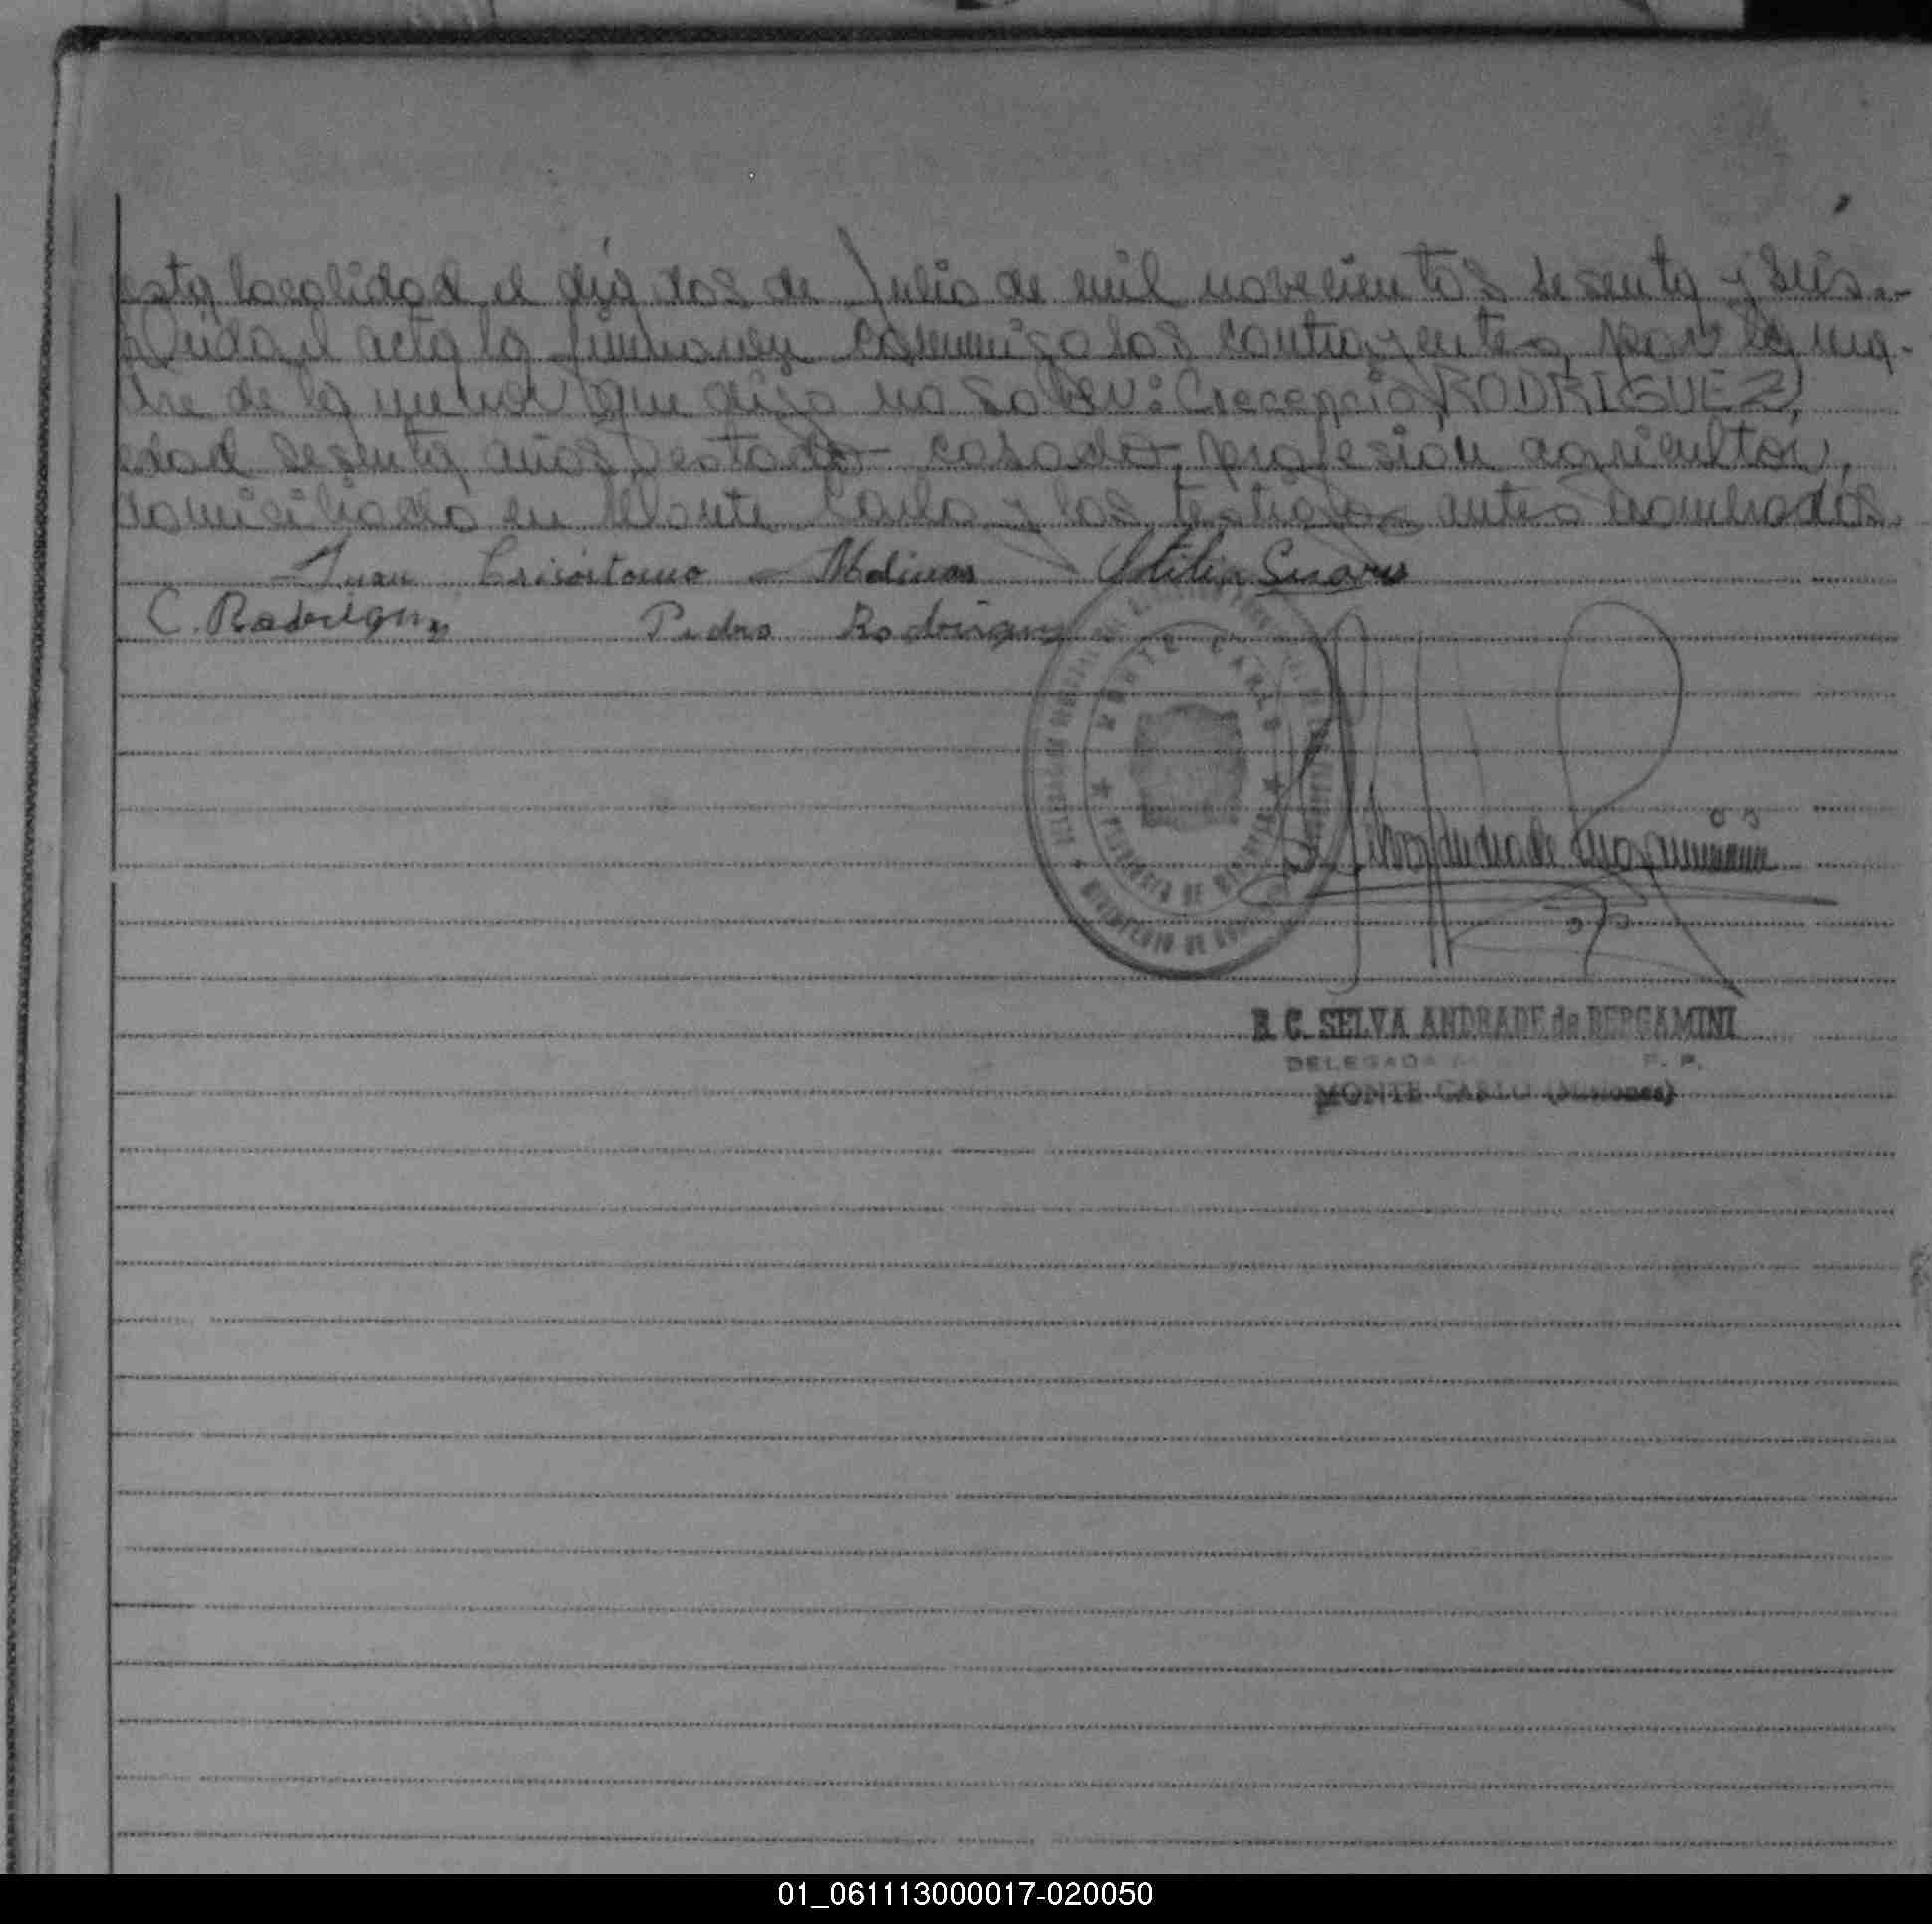 esta localidad el día dos de Julio de mil novecientos sesenta y seis.-
Leída el acta la firmaron conmigo los contrayentes, por la ma-
dre de la menor que dijo no saber: Crecencio RODRIGUEZ,
edad sesenta años, estado casado, profesión agricultor,
domiciliado en Monte Carlo y los testigos antes nombrados.
Juan Crisóstomo Molinas Otilia Suarez
C. Rodriguez Pedro Rodriguez
MONTE CARLO
R. C. SELVA ANDRADE de BERGAMINI
DELEGADA R. P.
MONTE CARLO (Misiones)
01_061113000017-020050